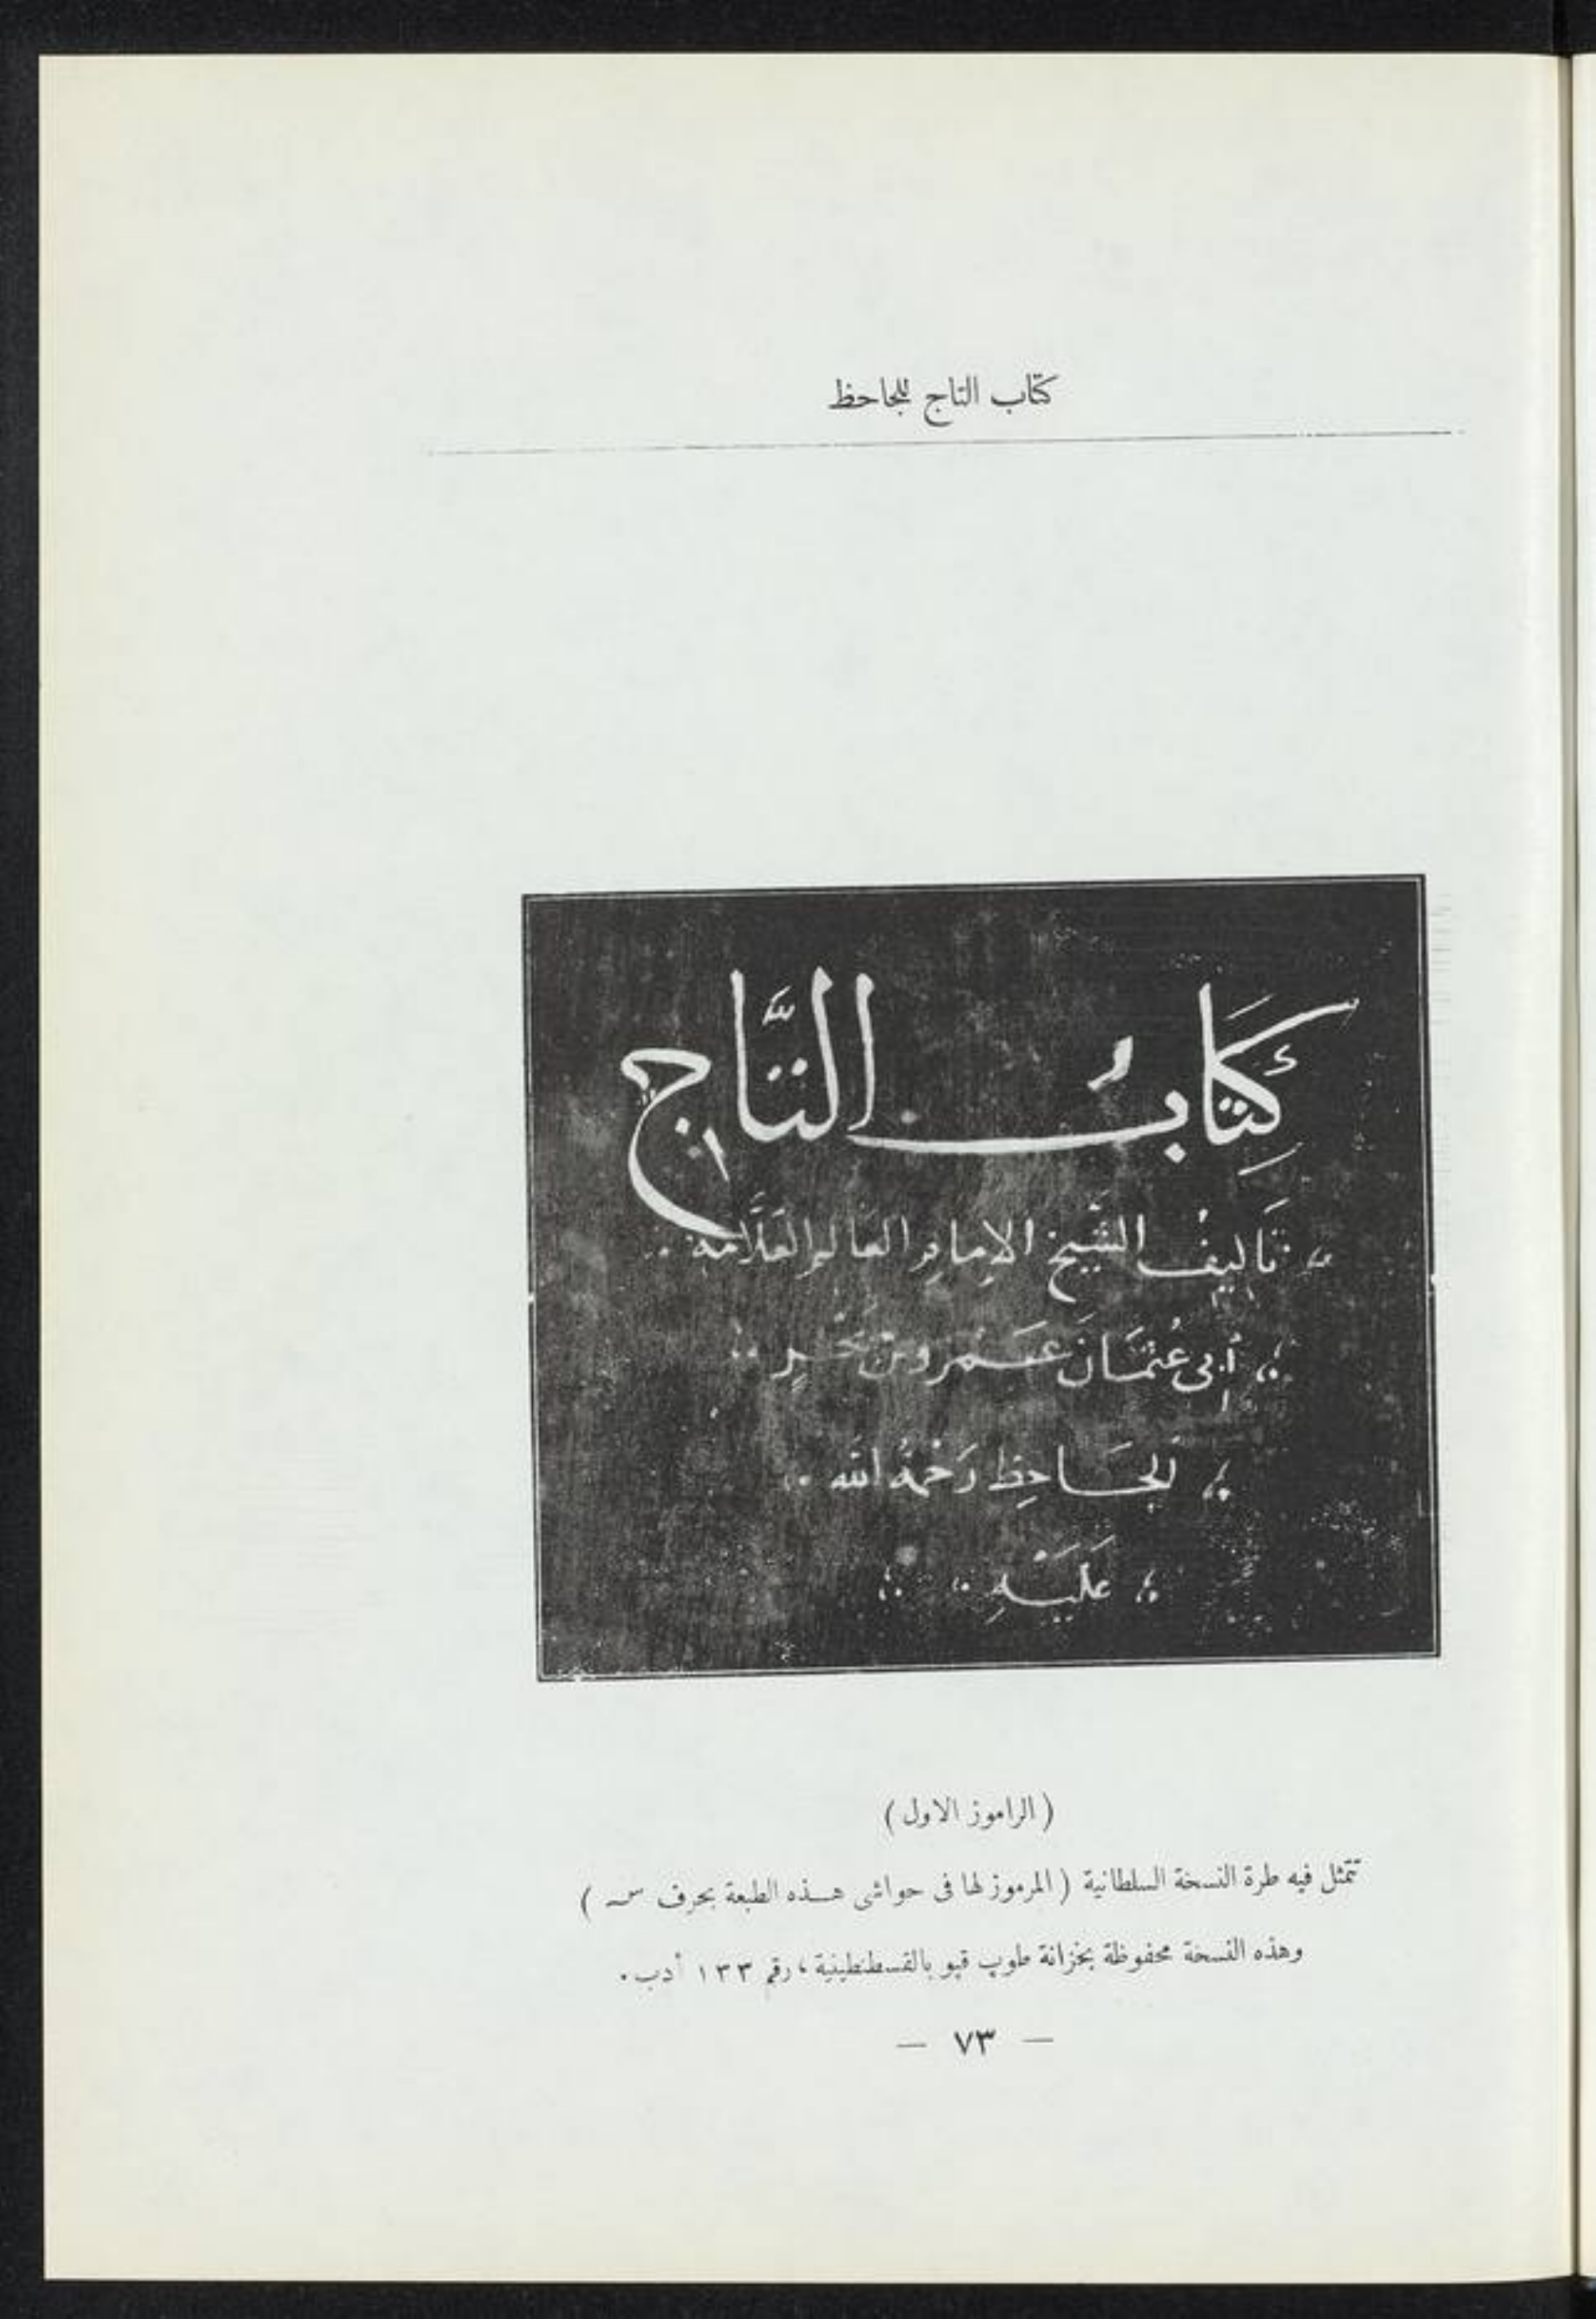 كتاب التاج للجاحظ
كِتَابُ التَّاجِ
تَأليفُ الشَّيخِ الإمامِ العَالِمِ العَلَّامَه
أَبِي عُثمَانَ عَمرِو بنِ بَحرٍ
الجَاحِظِ رَحْمَةُ الله
عَلَيْهِ
( الراموز الاول )
تتمثل فيه طرة النسخة السلطانية ( المرموز لها فى حواشى هذه الطبعة بحرف سـ )
وهذه النسخة محفوظة بخزانة طوپ قپو بالقسطنطينية ، رقم ١٣٣ أدب .
— ٧٣ —